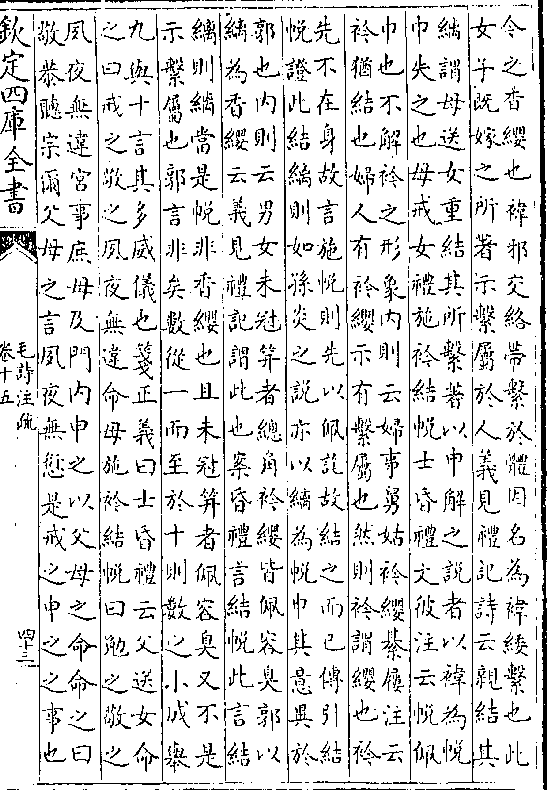 令之香纓也褘邪交絡帶繫於體因名為褘綏繫也此
女子既嫁之所著示繫屬於人義見禮記詩云親結其
縭謂母送女重結其所繫著以申解之說者以褘為帨
巾失之也母戒女禮施衿結帨士昏禮文彼注云帨佩
巾也不解衿之形象内則云婦事舅姑衿纓綦屨注云
衿猶結也婦人有衿纓示有繫屬也然則衿謂纓也衿
先不在身故言施帨則先以佩訖故結之而已傳引結
帨證此結縭則如孫炎之說亦以縭為帨巾其意異於
郭也内則云男女未冠笄者總角衿纓皆佩容臭郭以
縭為香纓云義見禮記謂此也案昏禮言結帨此言結
縭則縭當是帨非香纓也且未冠笄者佩容臭又不是
示繫屬也郭言非矣數從一而至於十則數之小成舉
九與十言其多威儀也箋正義曰士昏禮云父送女命
之曰戒之敬之夙夜無違命母施衿結帨曰勉之敬之
夙夜無違宮事庶母及門内申之以父母之命命之曰
敬恭聽宗爾父母之言夙夜無愆是戒之申之之事也
欽定四庫全書
毛詩注疏
卷十五
四十三